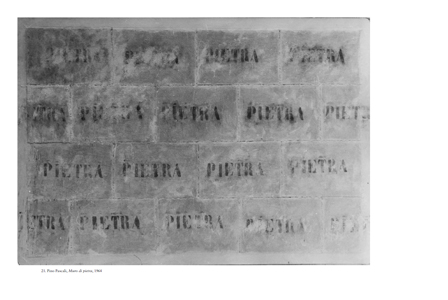 PIETRA PIETRA PIETRA PIETRA
PIETRA PIETRA PIETRA PIETRA PIET
PIETRA PIETRA PIETRA PIETRA
ETRA PIETRA PIETRA PIETRA PIE
15. Pino Pascali, Muro di pietra, 1964